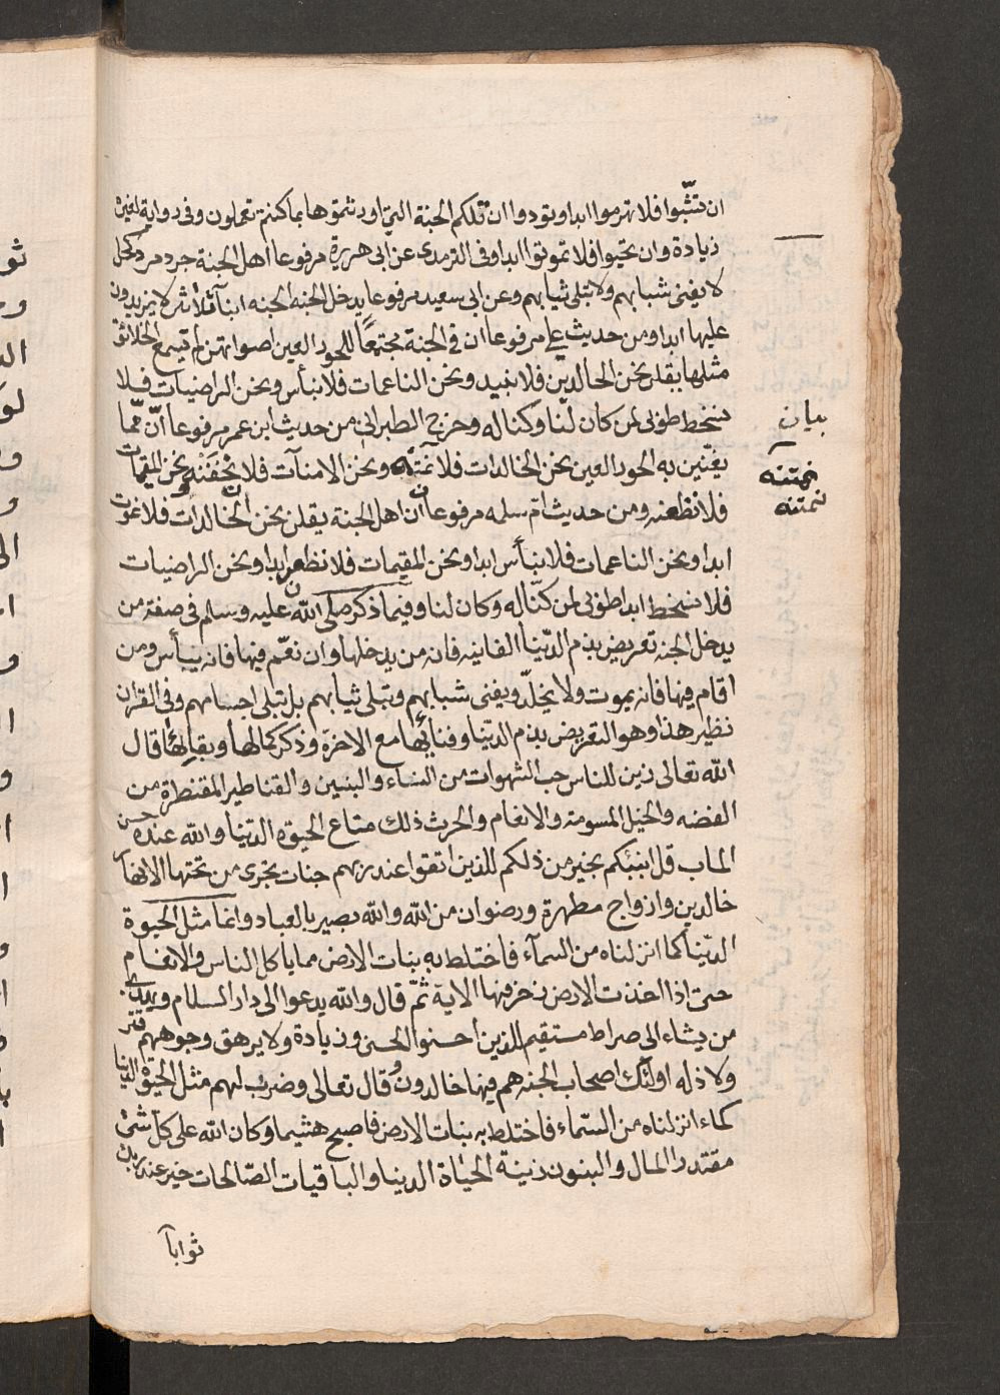 ان تشبوا فلا تهرموا ابدا ونودوا ان تلكم الجنة التي اورثتموها بما كنتم تعملون وفى رواية لغيره
زيادة وان تحيوا فلا تموتوا ابدا وفى الترمذى عن ابى هريرة مرفوعا اهل الجنة جرد مرد كحل
لا يفنى شبابهم ولا تبلى ثيابهم وعن ابى سعيد مرفوعا يدخل الجنه الجنه ابنآ ثلاثين لا يزيدون
عليها ابدا ومن حديث علي مرفوعا ان في الجنة مجتمعًا للحور العين اصواتهن لم تسمع الخلائق
مثلها يقلن نحن الخالدين فلا نبيد ونحن الناعمات فلا نبأس ونحن الراضيات فلا
نسخط طوبى لمن كان لنا وكنا له وخرج الطبرانى من حديث ابن عمر مرفوعا انّ ممّا
يغنّين به الحور العين نحن الخالدات فلا نمتنه ونحن الامنآت فلا نخفنه نحن المقيمات
فلا نظعنه ومن حديث ام سلمه مرفوعا ان اهل الجنة يقلن نحن الخالدات فلا نموت
ابدا ونحن الناعمات فلا نبأس ابدا ونحن المقيمات فلا نظعن ابدا ونحن الراضيات
فلا نسخط ابدا طوبى لمن كنّا له وكان لنا وفيما ذكر صلى الله عليه وسلم فى صفة من
يدخل الجنه تعريض بذم الدّنيا الفانيه فانه من يدخلها وان نعّم فيها فانه يبأس ومن
اقام فيها فانه يموت ولا يخلّد ويفنى شبابهم وتبلى ثيابهم بل تبلى اجسامهم وفى القران
نظير هذا وهو التعريض بذم الدّنيا وفنائها مع الاخرة وذكر كمالها وبقائها قال
الله تعالى زين للناس حب الشهوات من النساء والبنين والقناطير المقنطرة من
الفضه والخيل المسومة والانعام والحرث ذلك متاع الحيوة الدّنيا والله عنده حسن
الماب قل انبئكم بخير من ذلكم للذين اتقوا عند ربهم جنات تجرى من تحتها الانهار
خالدين وازواج مطهرة ورضوان من الله والله بصير بالعباد وانما مثل الحيوة
الدّنيا كما انزلناه من السمآء فاختلط به نبات الارض مما ياكل الناس والانعام
حتى اذا اخذت الارض زخرفها الاية ثمّ قال والله يدعوا الى دار السلام ويهدى
من يشاء الى صراط مستقيم للذين احسنوا الحسنى وزيادة ولا يرهق وجوههم قتر
ولا ذله اولئك اصحاب الجنه هم فيها خالدون وقال تعالى وضرب لهم مثل الحيوة الدنيا
كماء انزلناه من السّماء فاختلط به نبات الارض فاصبح هشيما وكان الله على كل شئ
مقتدر المال والبنون زينة الحياة الدنيا والباقيات الصّالحات خير عند ربك
ثوابآ
بيان
نمتنه
نمتنه